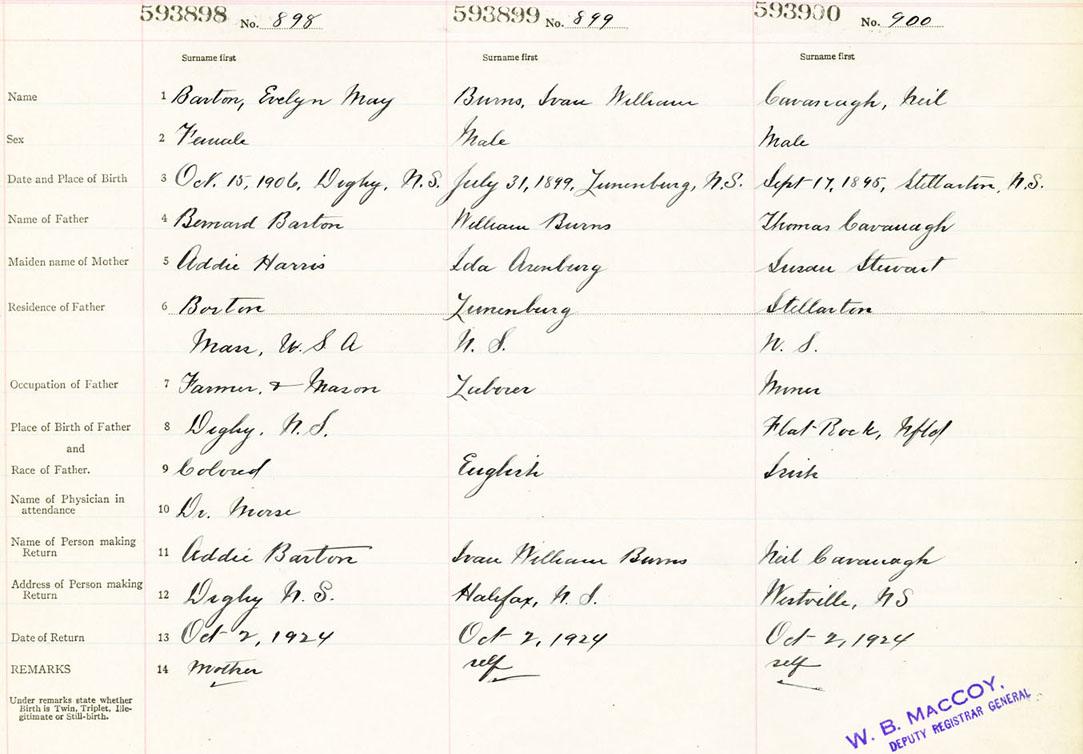 593898 No. 898 593899 No. 899 593900 No. 900
Surname first Surname first Surname first
Name 1 Barton, Evelyn May Burns, Ivan William Cavanagh, Neil
Sex 2 Female Male Male
Date and Place of Birth 3 Oct. 15, 1906, Digby, N.S. July 31, 1899, Lunenburg, N.S. Sept 17, 1895, Stellarton, N.S.
Name of Father 4 Bernard Barton William Burns Thomas Cavanagh
Maiden name of Mother 5 Addie Harris Ida Arenburg Susan Stewart
Residence of Father 6 Boston Lunenburg Stellarton
Mass, U.S A N. S. N. S.
Occupation of Father 7 Farmer, & Mason Laborer Miner
Place of Birth of Father 8 Digby, N.S. Flat Rock, Nfld
and
Race of Father. 9 Colored English Irish
Name of Physician in
attendance 10 Dr. Morse
Name of Person making
Return 11 Addie Barton Ivan William Burns Neil Cavanagh
Address of Person making
Return 12 Digby N.S. Halifax, N. S. Westville, NS
Date of Return 13 Oct 2, 1924 Oct 2, 1924 Oct 2, 1924
REMARKS 14 Mother self self
Under remarks state whether
Birth is Twin, Triplet, Ille-
gitimate or Still-birth.
W. B. MACCOY,
DEPUTY REGISTRAR GENERAL